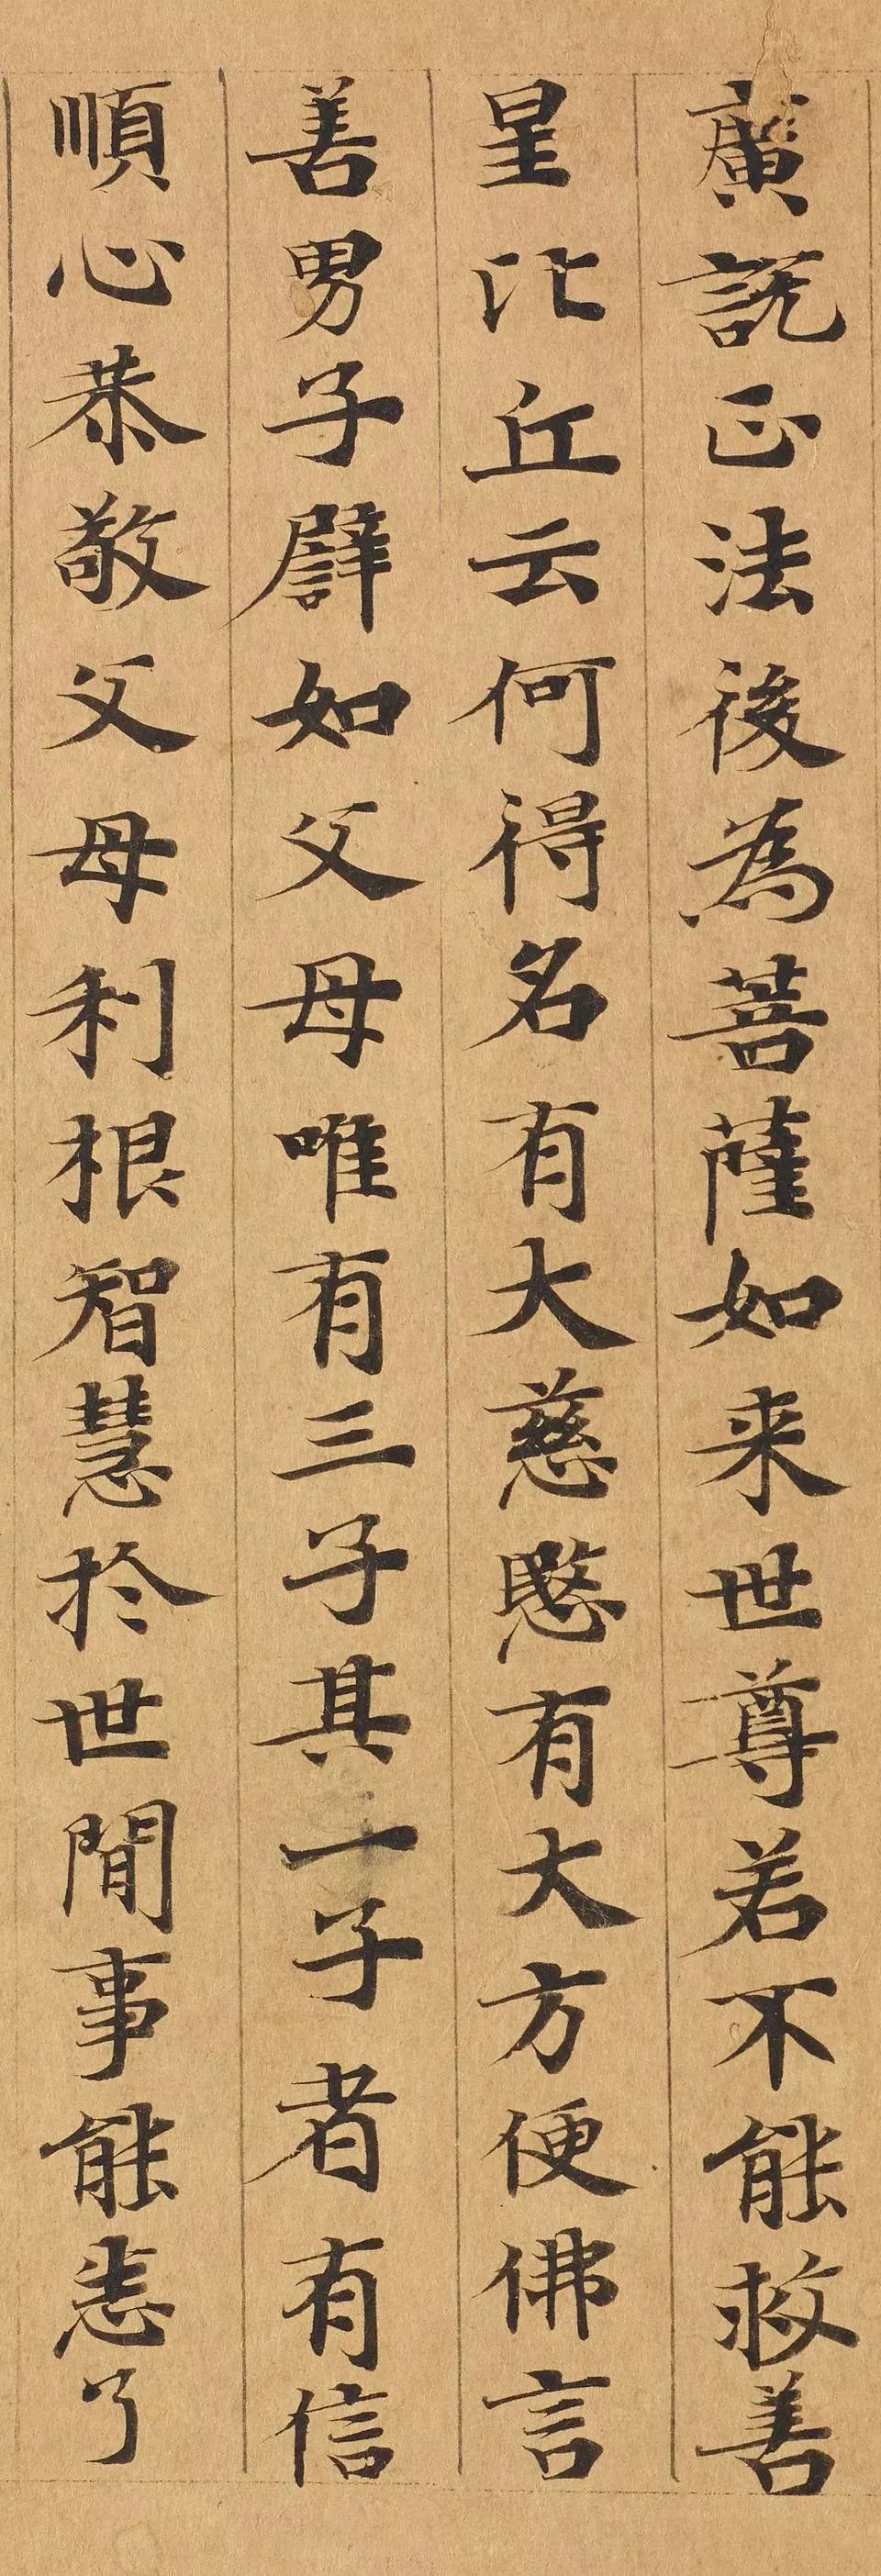 廣說正法後為菩薩如来世尊若不能救善
星比丘云何得名有大慈愍有大方便佛言
善男子譬如父母唯有三子其一子者有信
順心恭敬父母利根智慧於世間事能悉了